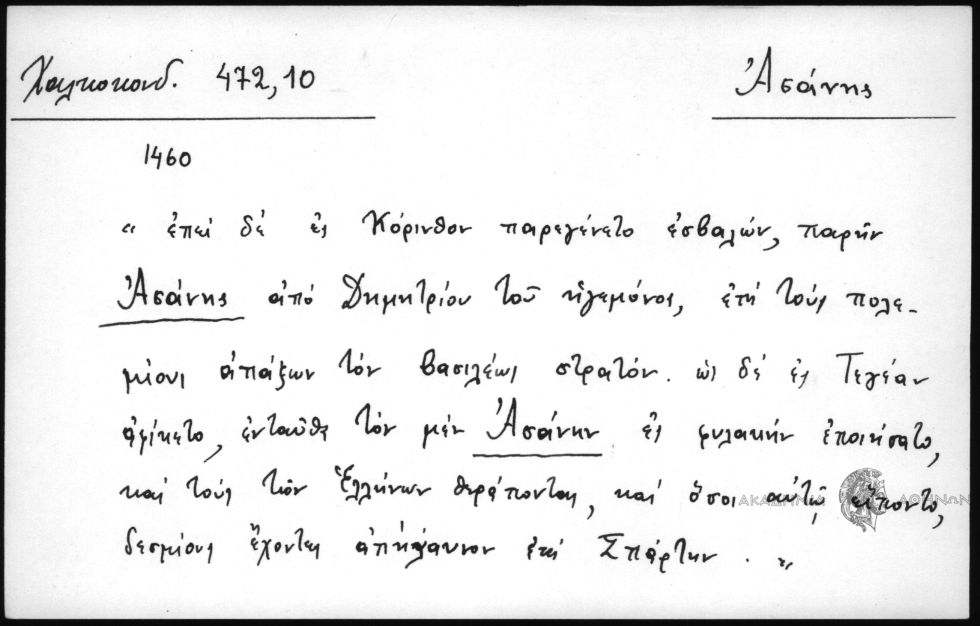 Χαλκοκονδ. 472,10
Ἀσάνης
1460
« ἐπεί δέ ἐς Κόρινθον παρεγένετο ἐσβαλών, παρῆν
Ἀσάνης ἀπό Δημητρίου τοῦ ἡγεμόνος, ἐπί τούς πολε-
μίους ἀπάξων τόν βασιλέως στρατόν. ὡς δέ ἐς Τεγέαν
ἀφίκετο, ἐνταῦθα τόν μέν Ἀσάνην ἐς φυλακήν ἐποιήσατο,
καί τούς τῶν Ἑλλήνων θεράποντας, καί ὅσοι αὐτῷ εἵποντο,
δεσμίους ἔχοντες ἀπήλαυνον ἐπί Σπάρτην . »
ΑΚΑΔΗΜΙΑ ΑΘΗΝΩΝ